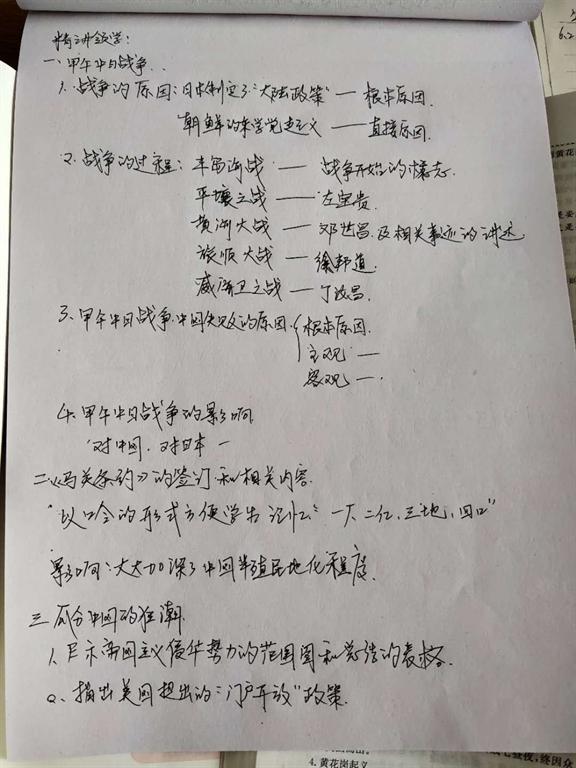 精讲领学:
一、甲午中日战争.
1. 战争的原因:日本制定了“大陆政策”— 根本原因.
朝鲜的东学党起义 —— 直接原因.
2、战争的过程: 丰岛海战 —— 战争开始的标志.
平壤之战 —— 左宝贵
黄海大战 —— 邓世昌及相关事迹的讲述
旅顺大战 —— 徐邦道
威海卫之战 — 丁汝昌.
3、甲午中日战争中国失败的原因 根本原因.
主观 —
客观 —.
4. 甲午中日战争的影响
对中国. 对日本 —
二、《马关条约》的签订和相关内容.
“以口令的形式方便学生记忆:“一厂,二亿,三地,四口”
影响:大大加深了中国半殖民地化程度.
三、瓜分中国的狂潮.
1、展示帝国主义侵华势力的范围图和总结的表格.
2、指出美国提出的“门户开放”政策.
4. 黄花岗起义